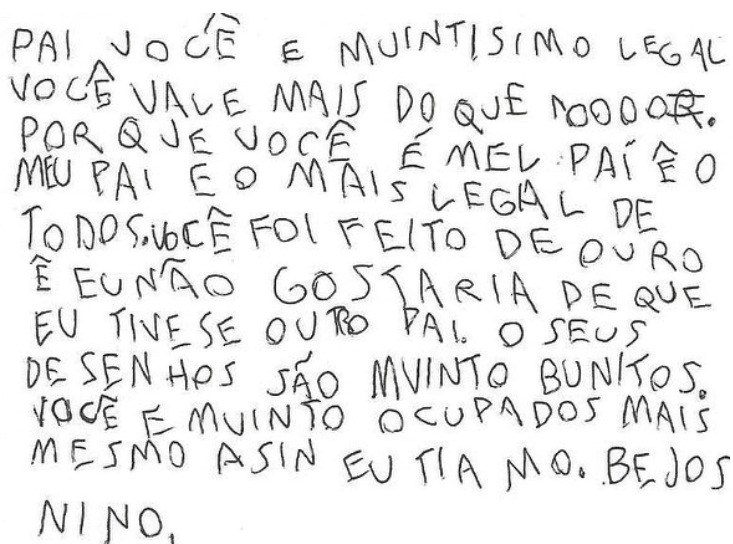 PAI VOCÊ E MUINTISIMO LEGAL
VOCÊ VALE MAIS DO QUE 10000R.
POR QUE VOCÊ É MEU PAÍ Ê O
MEU PAI E O MAIS LEGAL DE
TODOS.VOCÊ FOI FEITO DE OURO
Ê EU NÃO GOSTARIA DE QUE
EU TIVESE OUTRO PAI. O SEUS
DESENHOS SÃO MUINTO BUNITOS.
VOCÊ E MUINTO OCUPADOS MAIS
MESMO ASIN EU TIA MO. BEJOS
NINO.